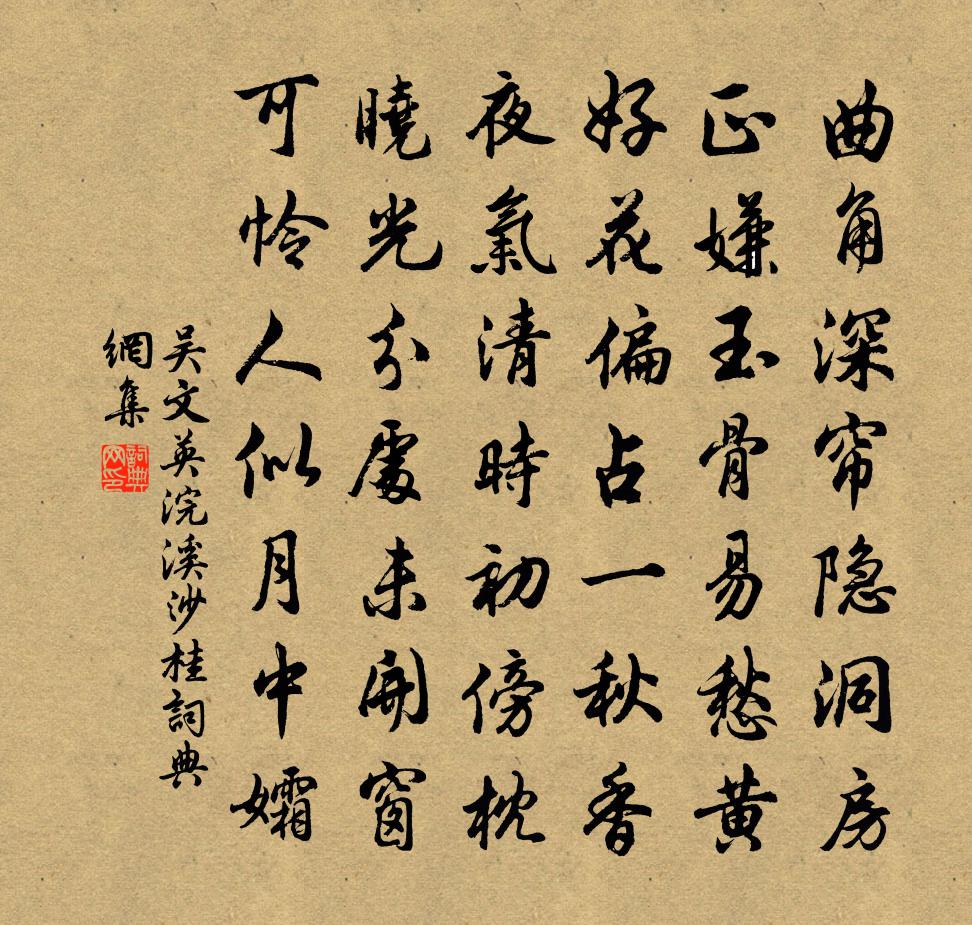 曲角深帘隐洞房
正嫌玉骨易愁黄
好花偏占一秋香
夜氣清時初傍枕
曉光分處未開窗
可怜人似月中孀
吴文英浣溪沙桂詞典
網集
詞典
网印